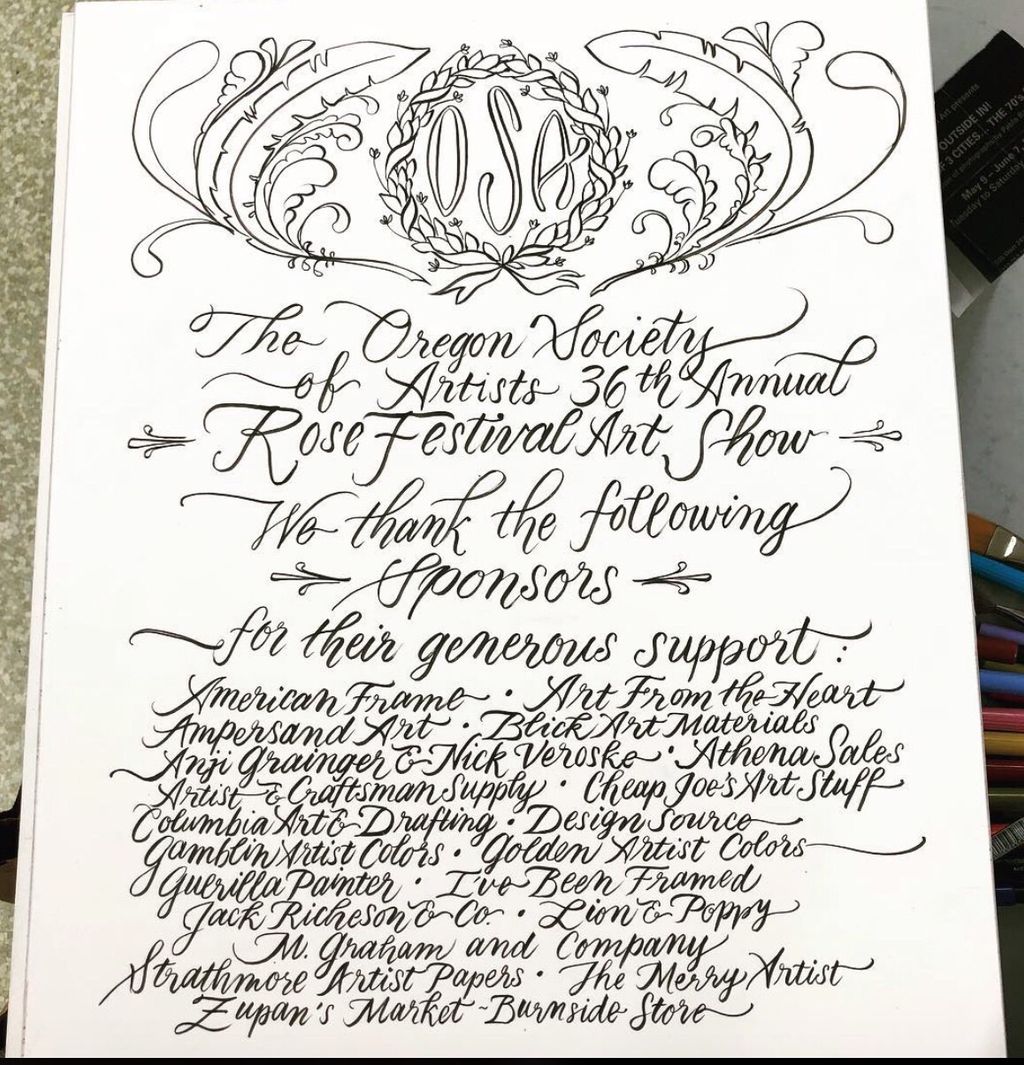 OSA
The Oregon Society
of Artists 36th Annual
Rose Festival Art Show
We thank the following
Sponsors
for their generous support:
American Frame • Art From the Heart
Ampersand Art • Blick Art Materials
Anji Grainger & Nick Veroske • Athena Sales
Artist & Craftsman Supply • Cheap Joe's Art Stuff
Columbia Art & Drafting • Design Source
Gamblin Artist Colors • Golden Artist Colors
Guerilla Painter • I've Been Framed
Jack Richeson & Co. • Lion & Poppy
M. Graham and Company
Strathmore Artist Papers • The Merry Artist
Zupan's Market ~ Burnside Store
Art presents
OUTSIDE IN!
3 CITIES... THE 70's
May 9 - June 7,
Tuesday to Saturday